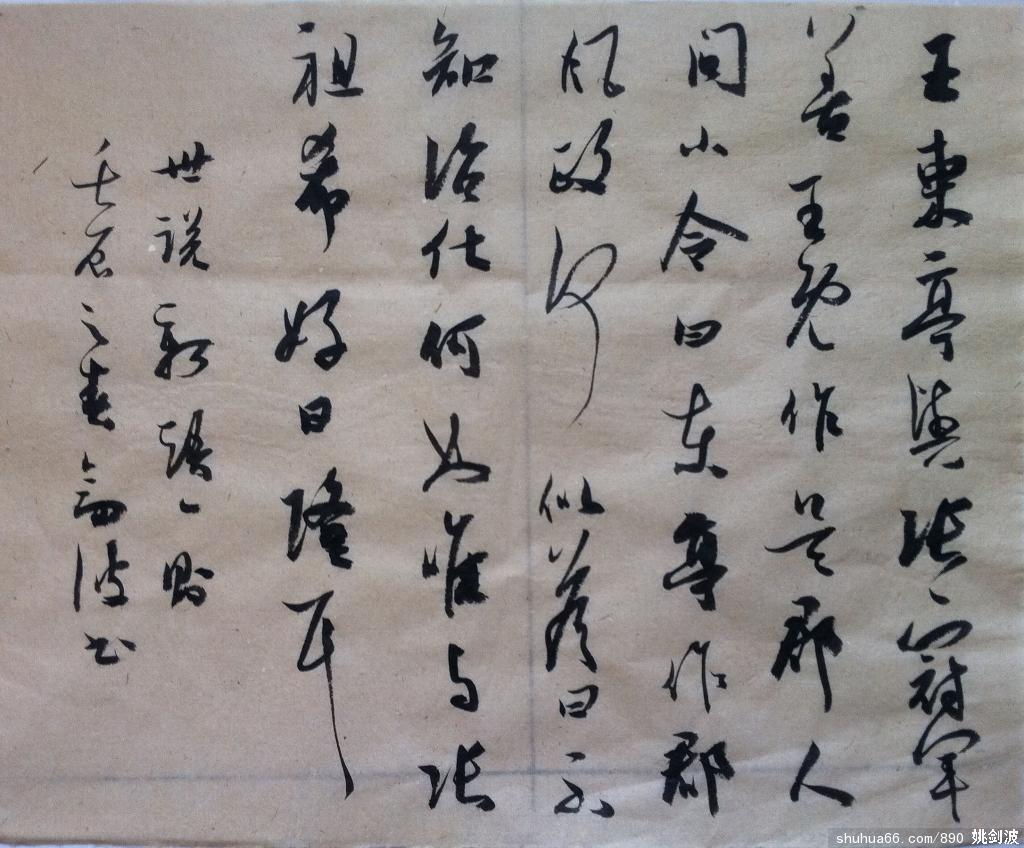 王東亭與張冠軍
善王既作吴郡人
问小令曰东亭作郡
风政何似答曰不
知治化何如唯与张
祖希好日隆耳
世说新语一则
壬辰之春剑波书
shuhua66.com/890 姚剑波